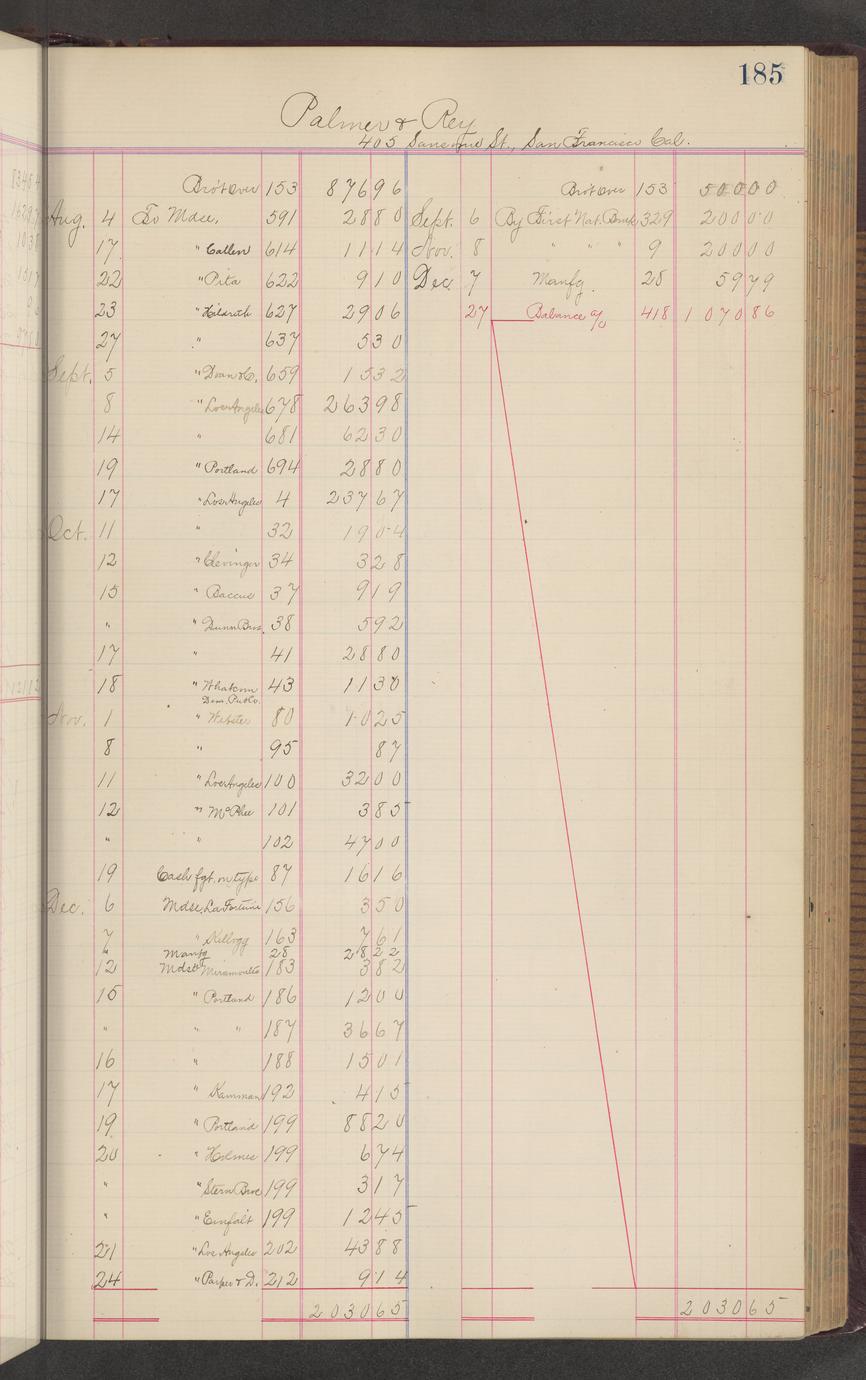 185
Palmer & Rey
405 Sansome St., San Francisco Cal.
Bro't over 153 876 96 Bro't over 153 500 00
Aug. 4 To Mdse, 591 28 80 Sept. 6 By First Nat. Bank 329 200 00
17 " Catlen 614 11 14 Nov. 8 " " " 9 200 00
22 " Pita 622 9 10 Dec. 7 Manfg. 28 59 79
23 " Hildreth 627 29 06 27 Balance a/c 418 1 070 86
27 " 637 5 30
Sept. 5 " Dean & Co. 659 15 32
8 " Los Angeles 678 263 98
14 " 681 62 30
19 " Portland 694 28 80
17 " Los Angeles 4 237 67
Oct. 11 " 32 19 04
12 " Clevinger 34 3 28
15 " Baccus 37 9 19
" " Dunn Bros. 38 5 92
17 " 41 28 80
18 " Whatcom 43 11 30
Dem. Pub Co.
Nov. 1 " Webster 80 10 25
8 " 95 87
11 " Los Angeles 100 32 00
12 " McPhee 101 3 85
" " 102 47 00
19 Cash fgt. on type 87 16 16
Dec. 6 Mdse, La Fortune 156 3 50
7 " Kellogg 163 7 61
" Manfg 28 28 22
12 Mdse 183 3 82
15 " Portland 186 12 00
" " " 187 36 67
16 " 188 15 01
17 " Kamman 192 4 15
19 " Portland 199 88 20
20 " Holmes 199 6 74
" " Stern Bros 199 3 17
" " Einfalt 199 12 45
21 " Los Angeles 202 43 88
24 " Parker & D. 212 9 14
2 030 65 2 030 65